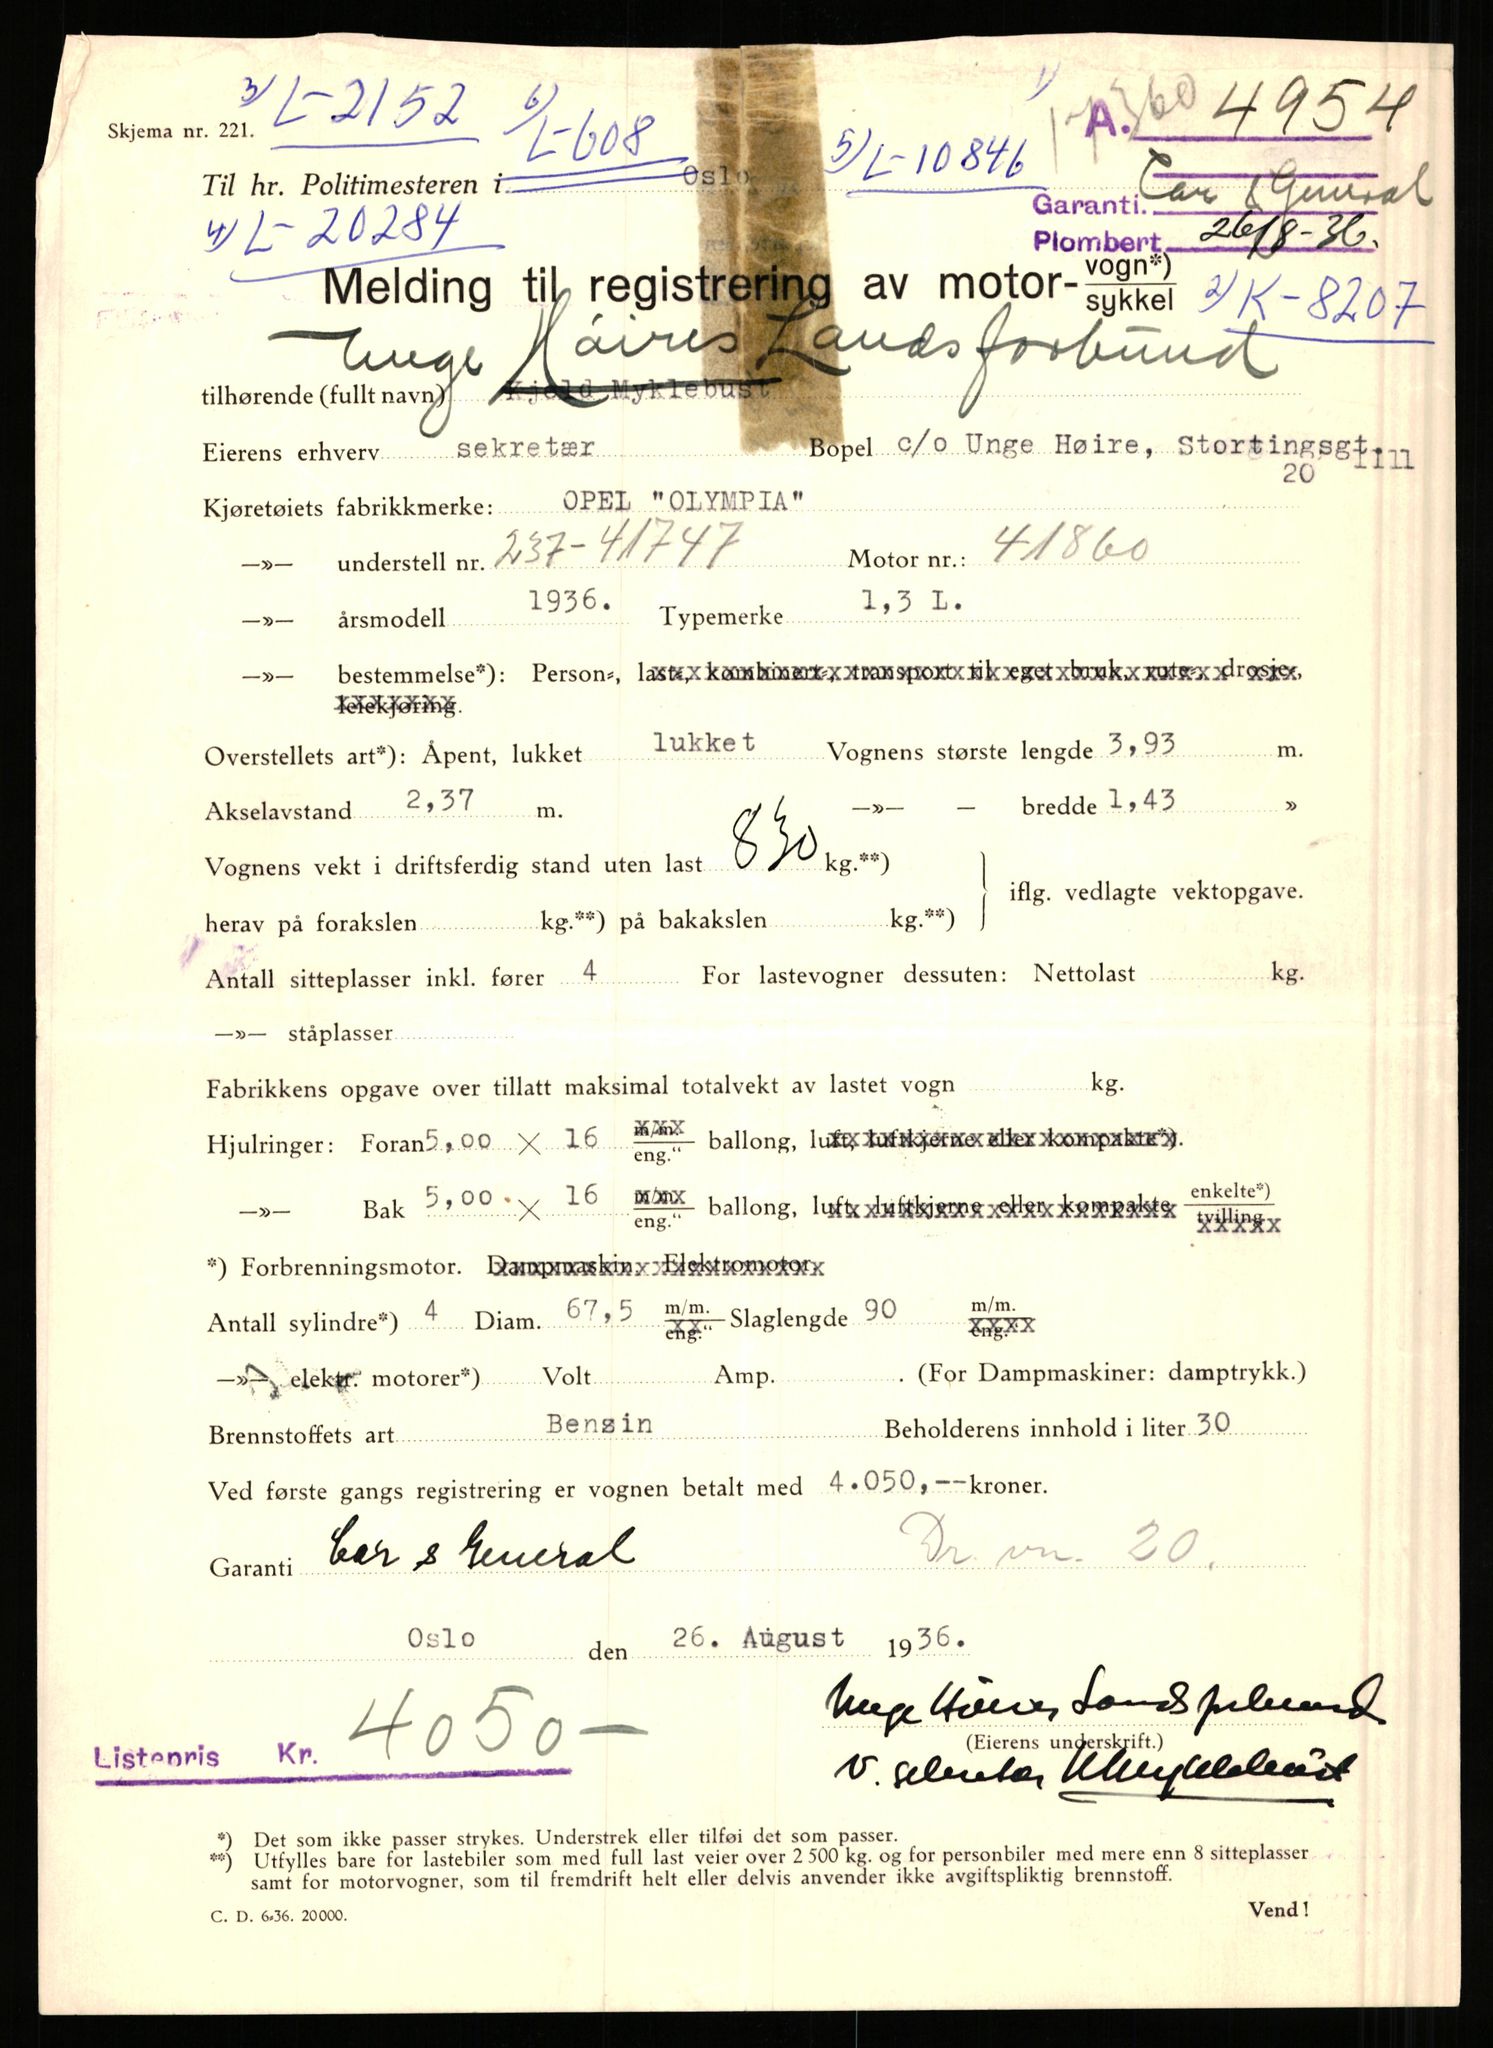 3) L-2152
6) L-608
1) A. 4954
17360
Skjema nr. 221.
5) L-10846
Til hr. Politimesteren i Oslo
Garanti. Car & General
4) L-20284
Plombert 26/8-36.
Melding til registrering av motor- vogn*) sykkel
2) K-8207
Unge Höires Landsforbund
tilhørende (fullt navn) Kjeld Myklebust
Eierens erhverv sekretær Bopel c/o Unge Høire, Stortingsgt. 20 1111
Kjøretøiets fabrikkmerke: OPEL "OLYMPIA"
—»— understell nr. 237-41747 Motor nr.: 41860
—»— årsmodell 1936. Typemerke 1,3 L.
—»— bestemmelse*): Person-, last-, kombinert-, transport til eget bruk, rute-, drosje-,
leiekjøring.
Overstellets art*): Åpent, lukket lukket Vognens største lengde 3,93 m.
Akselavstand 2,37 m. —»— — bredde 1,43 »
Vognens vekt i driftsferdig stand uten last 830 kg.**)
iflg. vedlagte vektopgave.
herav på forakslen kg.**) på bakakslen kg.**)
Antall sitteplasser inkl. fører 4 For lastevogner dessuten: Nettolast kg.
—»— ståplasser
Fabrikkens opgave over tillatt maksimal totalvekt av lastet vogn kg.
Hjulringer: Foran 5,00 × 16 m/m. eng." ballong, luft, luftkjerne eller kompakte*).
—»— Bak 5,00 × 16 m/m. eng." ballong, luft, luftkjerne eller kompakte enkelte*) tvilling
*) Forbrenningsmotor. Dampmaskin. Elektromotor.
Antall sylindre*) 4 Diam. 67,5 m/m. eng." Slaglengde 90 m/m. eng."
—»— elektr. motorer*) Volt Amp. . (For Dampmaskiner: damptrykk.)
Brennstoffets art Bensin Beholderens innhold i liter 30
Ved første gangs registrering er vognen betalt med 4.050,-- kroner.
Garanti Car & General Dr. vn. 20.
Oslo den 26. August 1936.
Unge Höires Landsforbund
Listepris Kr. 4050-
(Eierens underskrift.)
v. sekretær KMyklebust
*) Det som ikke passer strykes. Understrek eller tilføi det som passer.
**) Utfylles bare for lastebiler som med full last veier over 2 500 kg. og for personbiler med mere enn 8 sitteplasser
samt for motorvogner, som til fremdrift helt eller delvis anvender ikke avgiftspliktig brennstoff.
C. D. 6-36. 20000.
Vend!